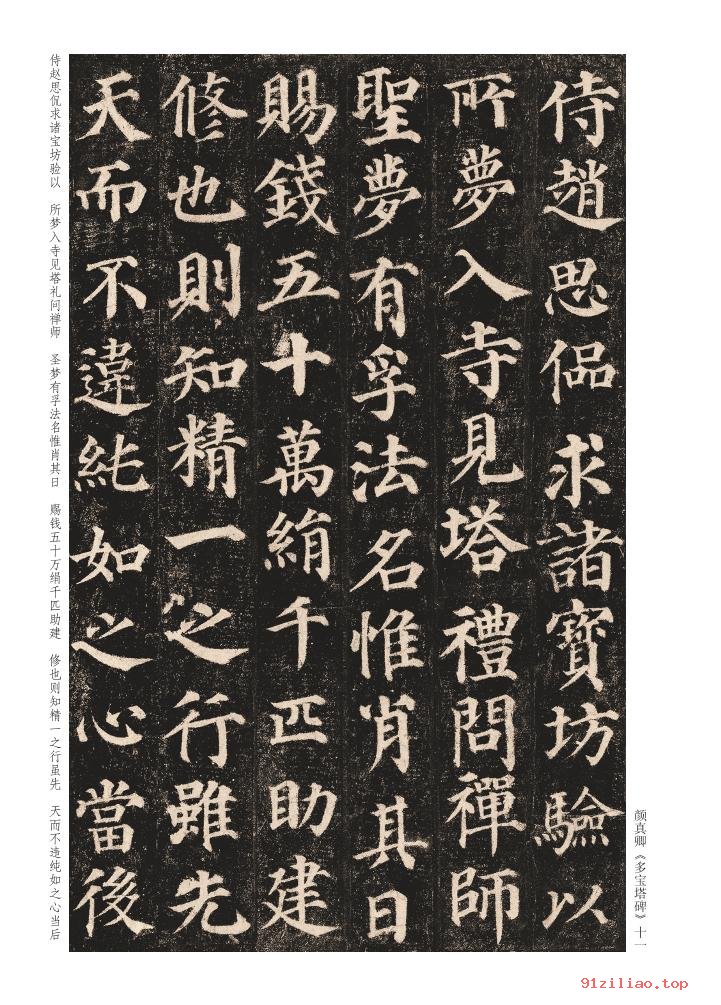 颜真卿《多宝塔碑》十一
侍趙思偘求諸寶坊驗以
所夢入寺見塔禮問禪師
聖夢有孚法名惟肖其日
賜錢五十萬絹千匹助建
修也則知精一之行雖先
天而不違純如之心當後
侍赵思侃求诸宝坊验以　所梦入寺见塔礼问禅师　圣梦有孚法名惟肖其日　赐钱五十万绢千匹助建　修也则知精一之行虽先　天而不造纯如之心当后
91ziliao.top